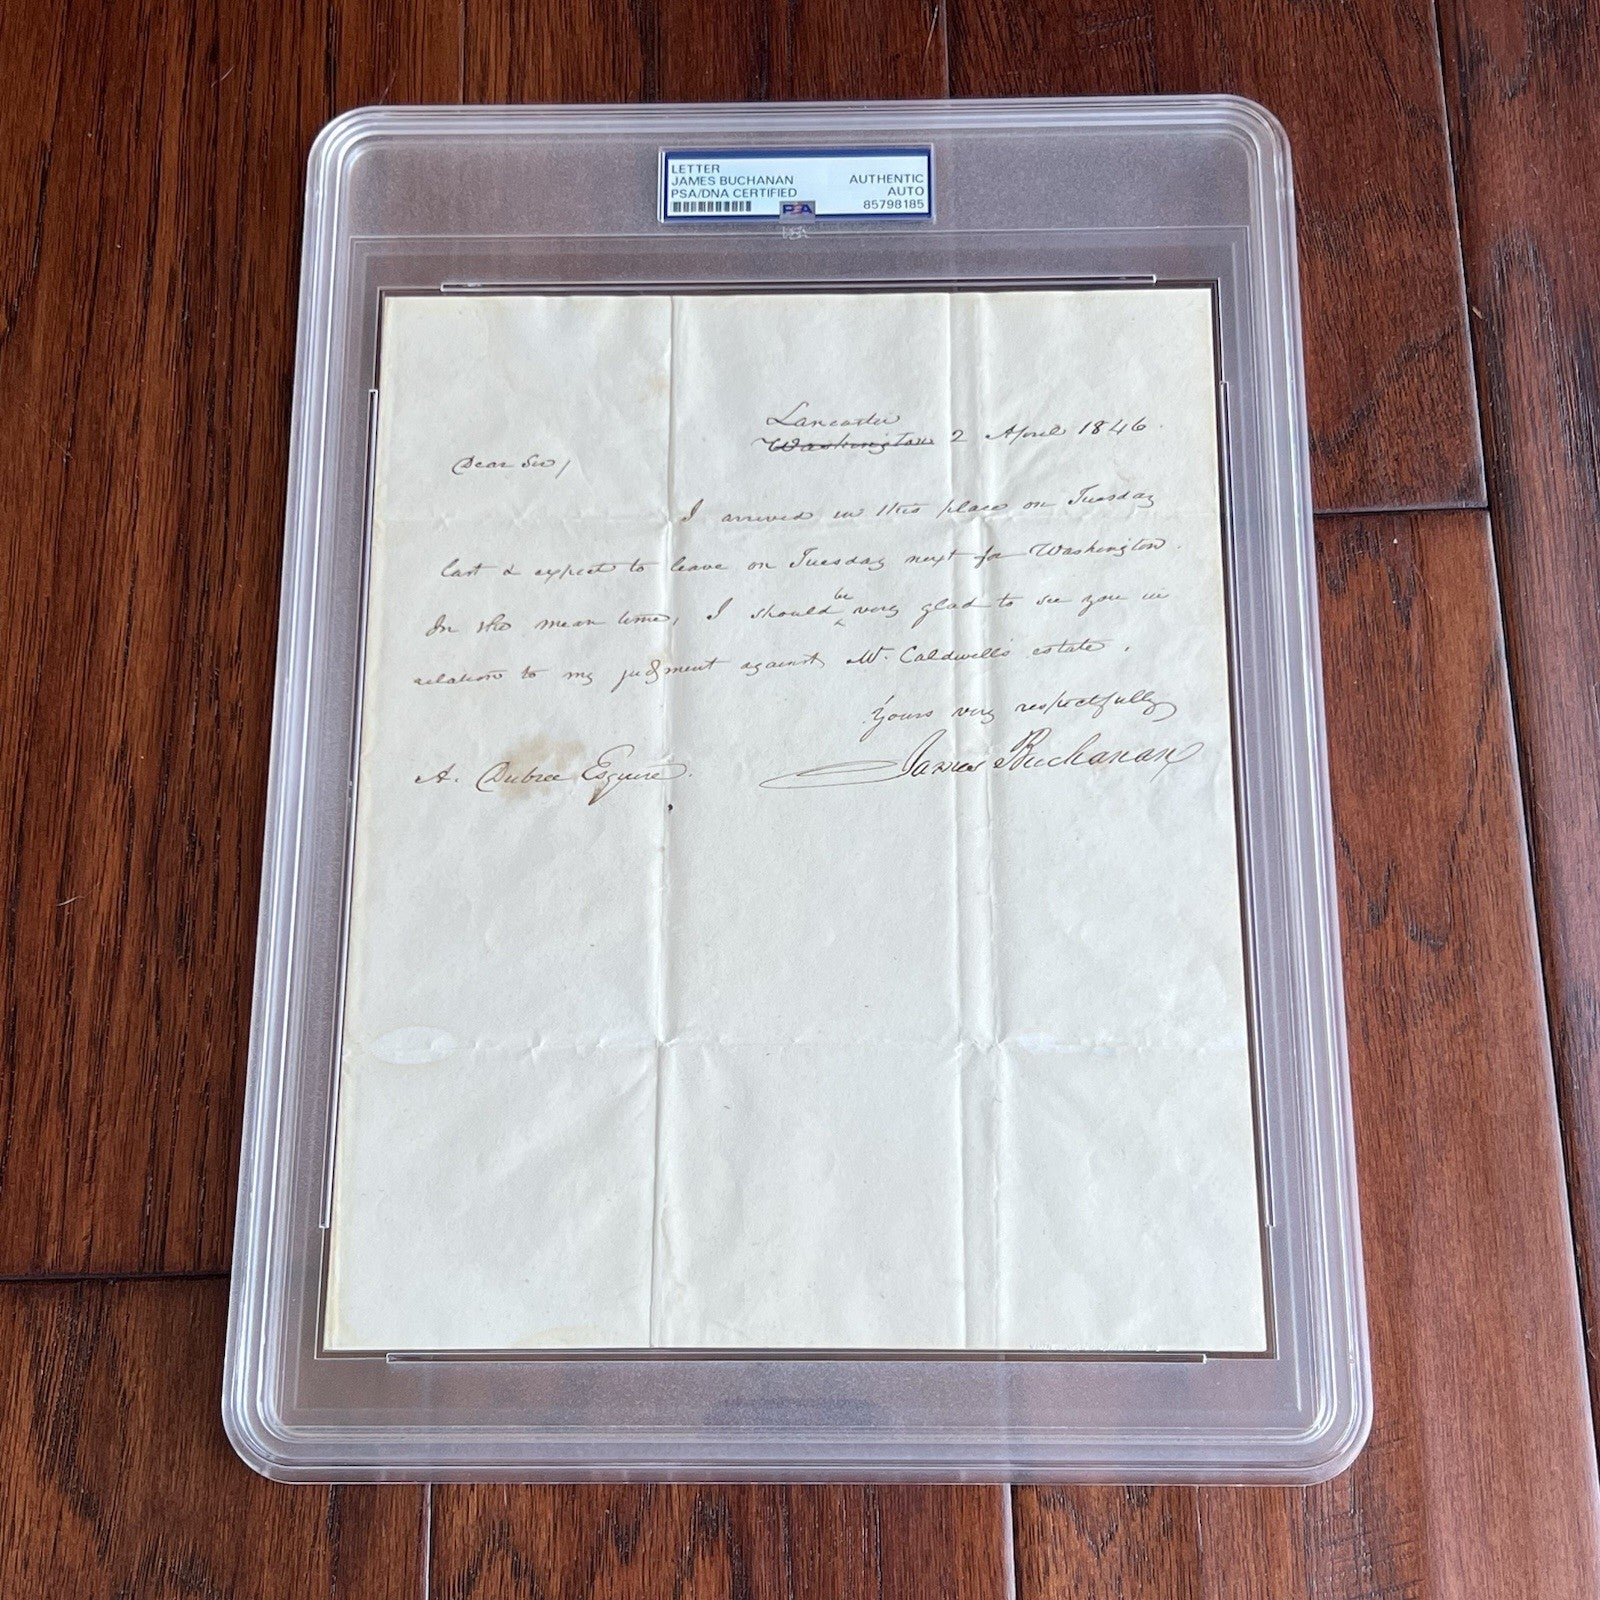 LETTER
JAMES BUCHANAN
PSA/DNA CERTIFIED
AUTHENTIC
AUTO
85798185
PSA
Lancaster
Washington 2 April 1846.
Dear Sir,
I arrived in this place on Tuesday
last & expect to leave on Tuesday next for Washington.
In the mean time, I should be very glad to see you in
relation to my judgment against Mr. Caldwell's estate.
Yours very respectfully
James Buchanan
A. Dubree Esquire.